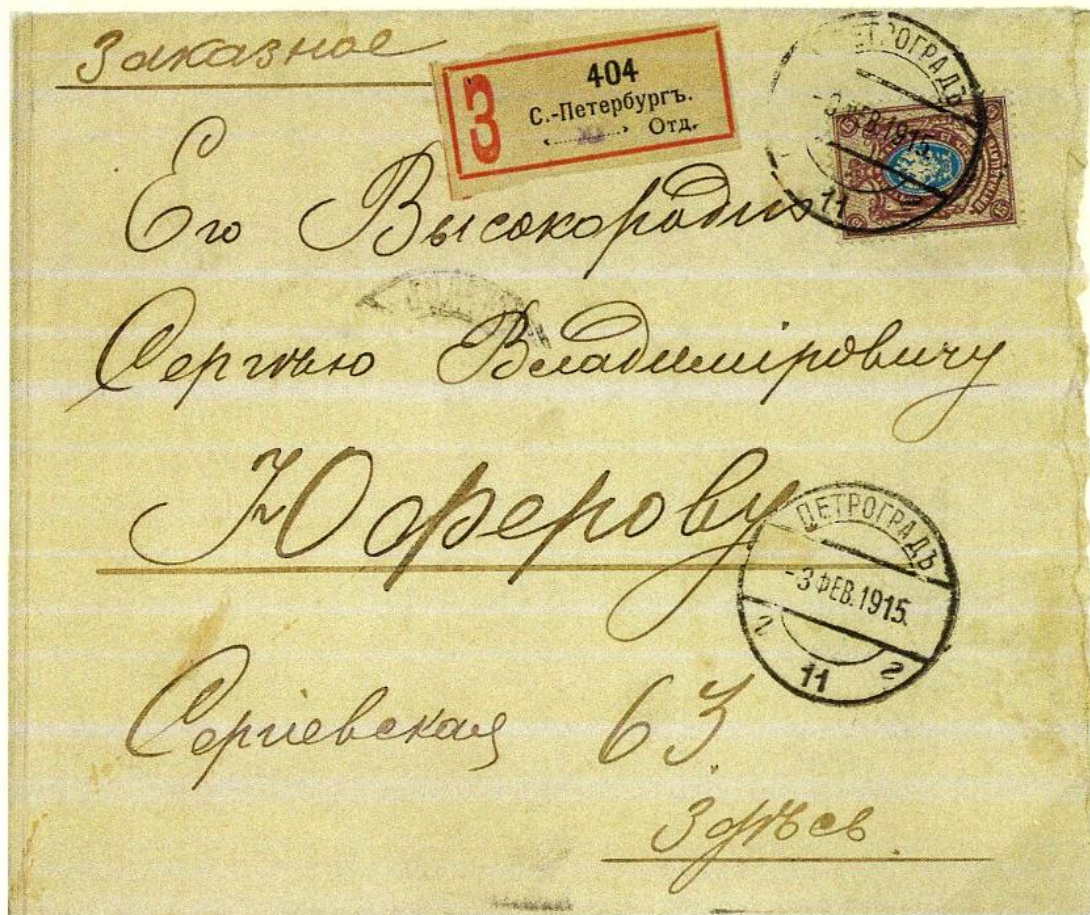 Заказное
З
404
С.-Петербургъ.
Отд.
ПЕТРОГРАДЪ
-3 ФЕВ.1915.
11
15
Его Высокородію
Сергѣю Владиміровичу
Юферову
ПЕТРОГРАДЪ
-3 ФЕВ.1915.
2 11 г
Сергіевская 63.
Здѣсь